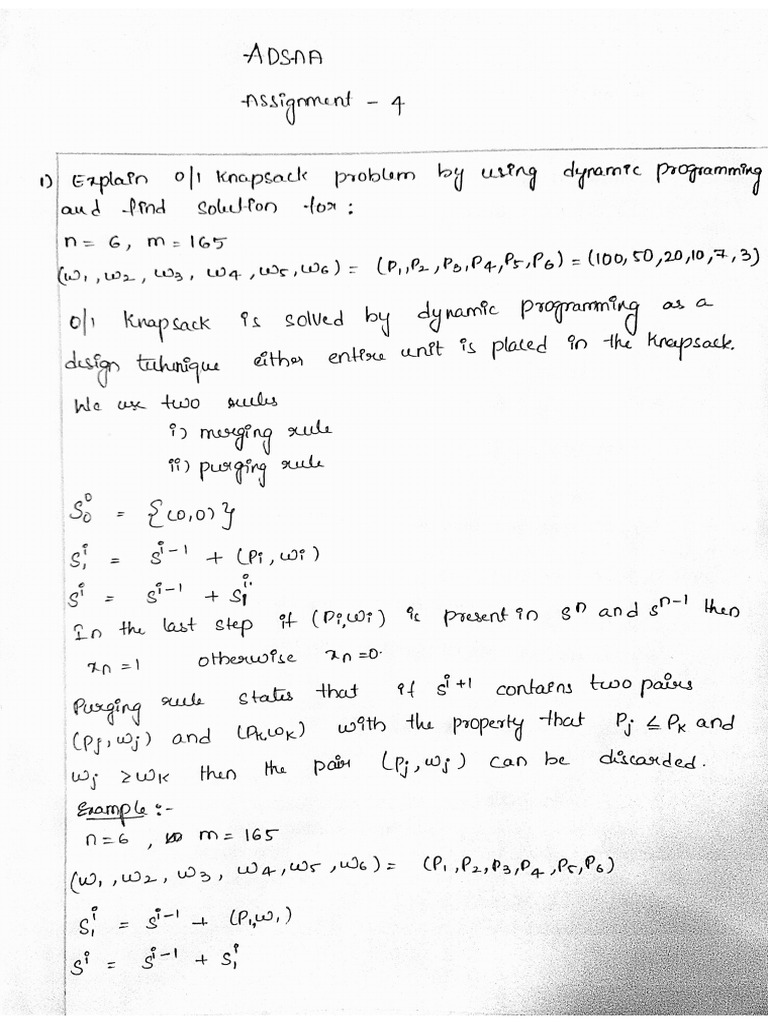 ADSAA
Assignment - 4
1) Explain 0/1 Knapsack problem by using dynamic programming
and find solution for :
n = 6, m = 165
(w1, w2, w3, w4, w5, w6) = (P1, P2, P3, P4, P5, P6) = (100, 50, 20, 10, 7, 3)
0/1 Knapsack is solved by dynamic programming as a
design tehnique either entire unit is placed in the Knapsack.
We use two rules
i) merging rule
ii) purging rule
S₀⁰ = {(0,0)}
S₁ⁱ = Sⁱ⁻¹ + (Pi, wi)
Sⁱ = Sⁱ⁻¹ + S₁ⁱ
In the last step if (Pi, wi) is present in Sⁿ and Sⁿ⁻¹ then
xn = 1 otherwise xn = 0.
Purging rule states that if Sⁱ⁺¹ contains two pairs
(Pj, wj) and (Pk, wk) with the property that Pj ≤ Pk and
wj ≥ wk then the pair (Pj, wj) can be discarded.
Example :-
n = 6, m = 165
(w1, w2, w3, w4, w5, w6) = (P1, P2, P3, P4, P5, P6)
S₁ⁱ = Sⁱ⁻¹ + (P1, w1)
Sⁱ = Sⁱ⁻¹ + S₁ⁱ